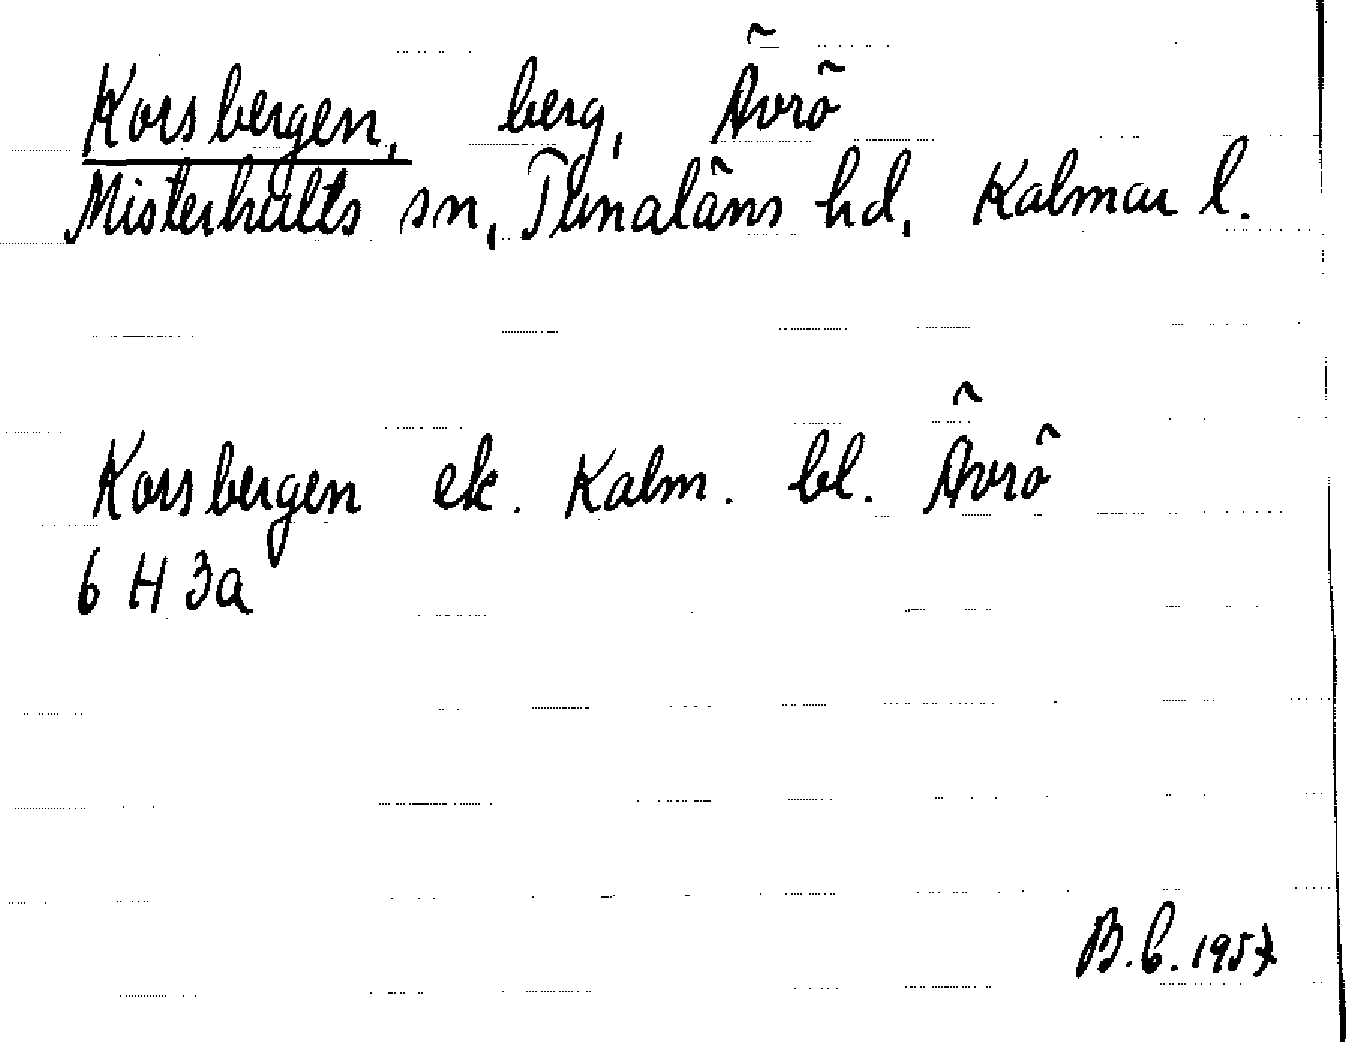 Korsbergen, berg, Ävrö
Misterhults sn, Tunaläns hd, Kalmar l.
Korsbergen ek. Kalm. bl. Ävrö
6 H 3a
B.b. 1957